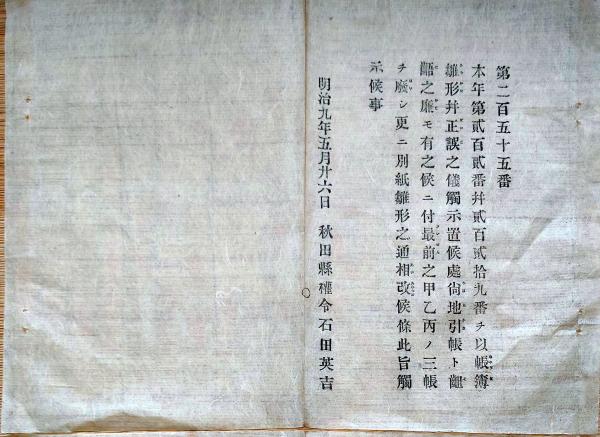 第二百五十五番
本年第貳百貳番幷貳百貳拾九番ヲ以帳簿
雛形幷正誤之儀觸示置候處尙地引帳ト齟
齬之廉モ有之候ニ付最前之甲乙丙ノ三帳
ヲ廢シ更ニ別紙雛形之通相改候條此旨觸
示候事
明治九年五月廿六日 秋田縣權令石田英吉